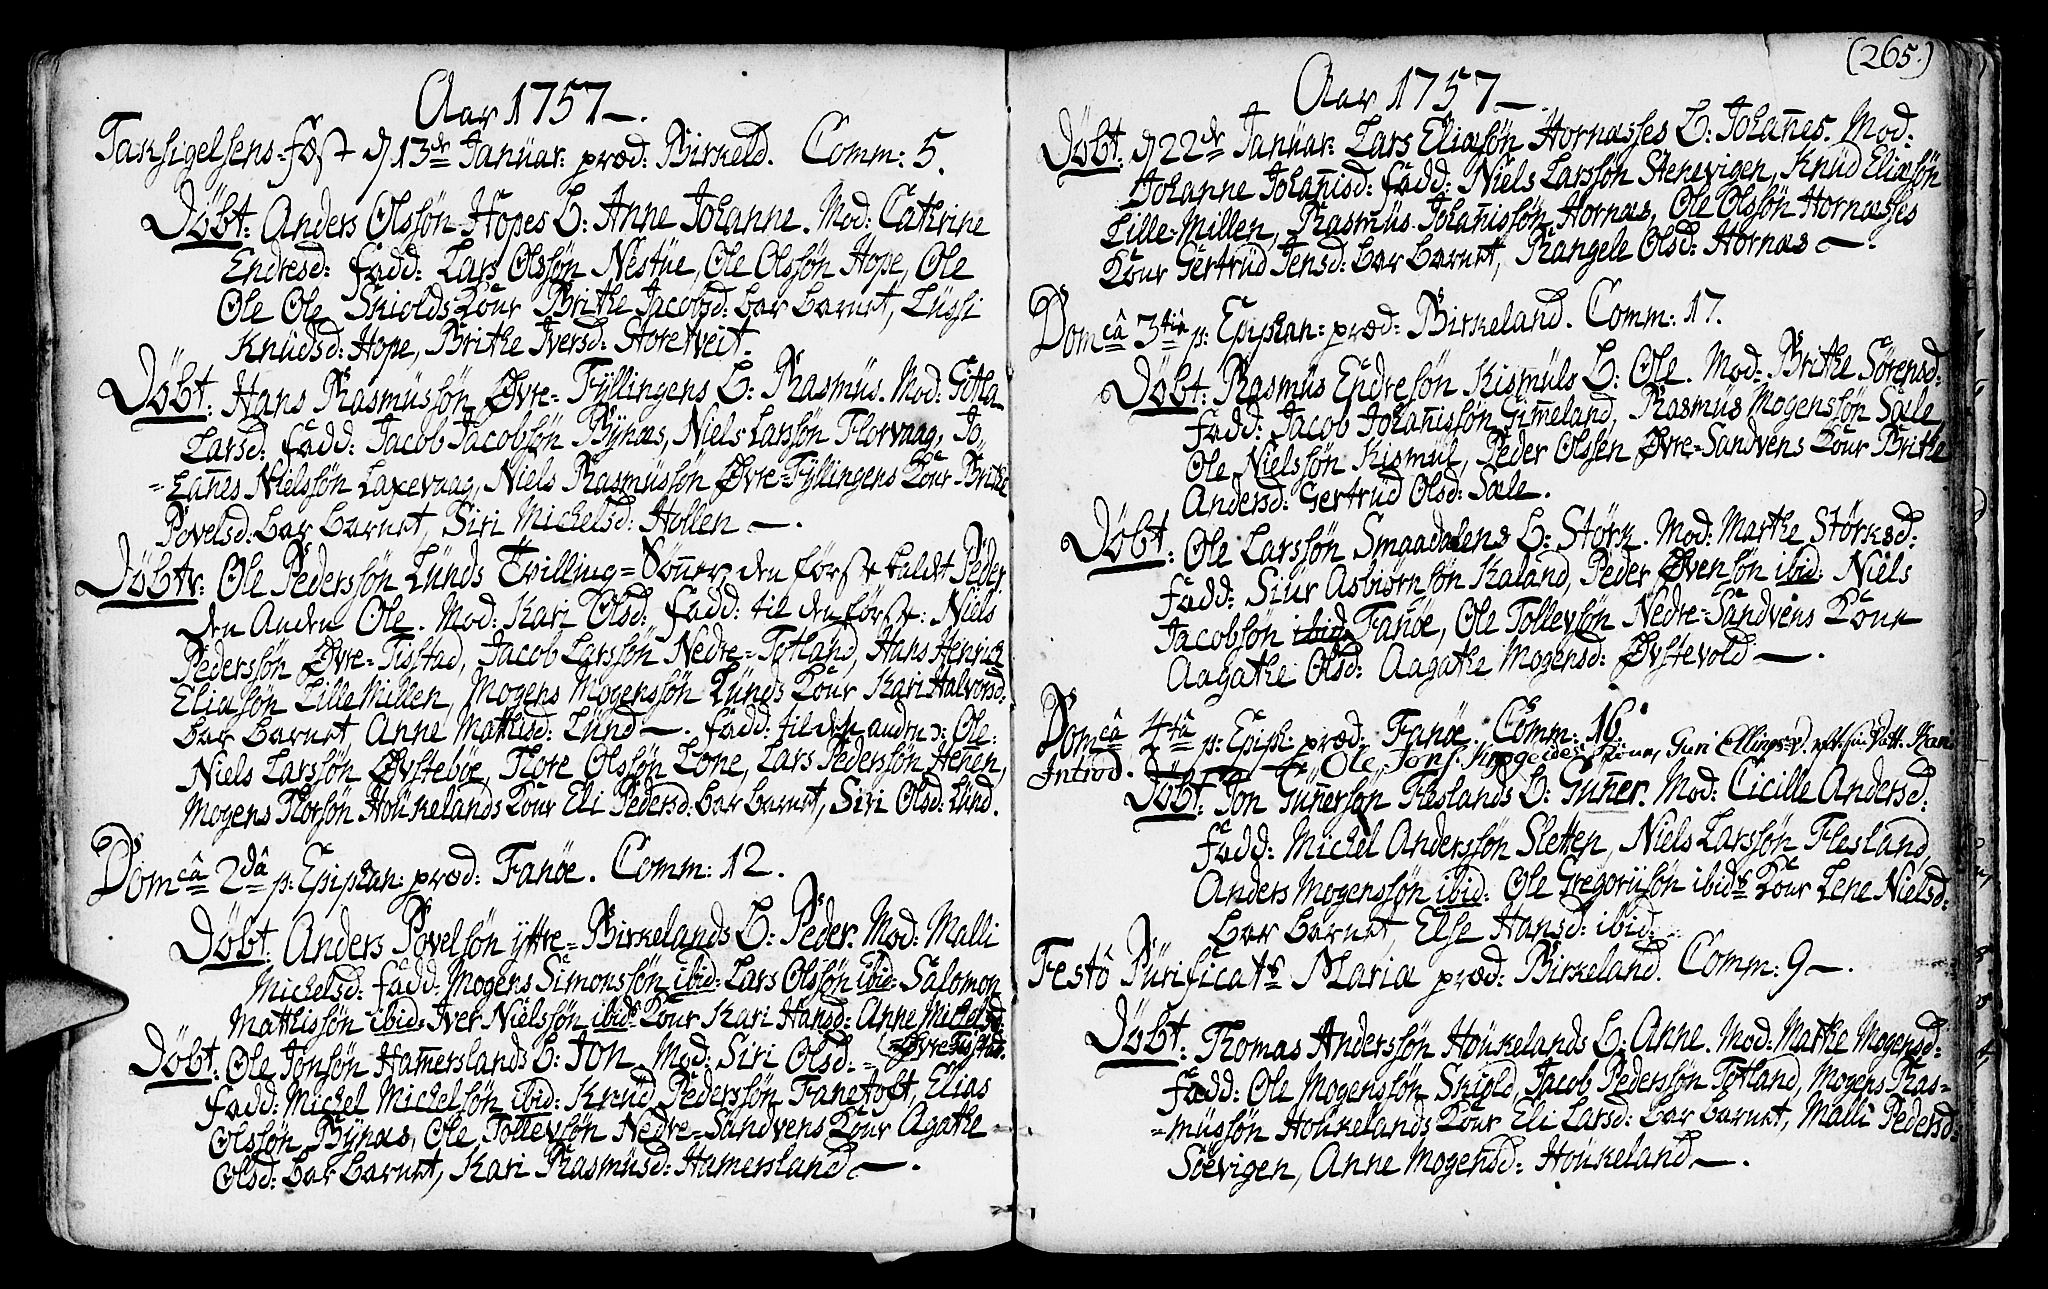 Aar 1757.
Taksigelsens-fæst d 13de Januar: præd: Birkeld. Comm: 5.
Døbt: Anders Olssøn Hopes b: Anne Johanne. Mod: Cathrine
Endresd: fadd: Lars Olssøn Nestue, Ole Olssøn Hope, Ole
Ole Ole Skiolds Kone Brithe Jacobsd: bar barnet, Lussi
Knudsd: Hope, Brithe Iversd: Storetveit.
Døbt: Hans Rasmussøn Øvre-Fyllingens b: Rasmus. Mod: Gitla
Larsd: fadd: Jacob Jacobsøn Bynæs, Niels Larssøn Florvaag, Jo
=han̄es Nielssøn Laxevaag, Niels Rasmussøn Øvre-Fyllingens Kone Brithe
Povelsd: bar barnet, Siri Michelsd: Hollen.
Døbte: Ole Pederssøn Lunds Tvilling=Søn̄er, den første kaldt Peder
den Anden Ole. Mod: Kari Olsd: fadd: til den første: Niels
Pederssøn Øvre-Tistad, Jacob Larssøn Nedre-Totland, Hans Henrich
Eliasøn Lille Millen, Mogens Mogenssøn Lunds Kone Kari Halvorsd:
bar barnet, Anne Mathisd: Lund. fadd: til den anden: Ole:
Niels Larssøn Øvstebøe, Thore Olssøn Lone, Lars Pederssøn Helien,
Mogens Thorsøn Houkelands Kone Eli Pedersd: bar barnet, Siri Olsd: Lund.
Domcâ 2dâ p: Epiphan: præd: Fanøe. Comm: 12.
Døbt: Anders Povelsøn ÿttre-Birkelands b: Peder. Mod: Malli
Michelsd: fadd: Mogens Simonssøn ibid: Lars Olssøn ibid: Salomon
Mathissøn ibid: Iver Nielssøn ibids Kone Kari Hansd: Anne Michelsd:
=Øvre-Tistad.
Døbt: Ole Jonsøn Ham̄erslands b: Jon. Mod: Siri Olsd:
fadd: Michel Michelsøn ibid: Knud Pederssøn Fanetoft, Elias
Olssøn Bynæs, Ole Tollevsøn Nedre-Sandvens Kone Agathe
Olsd: bar barnet, Kari Rasmusd: Ham̄ersland.
(265.)
Aar 1757.
Døbt: d 22de Januar: Lars Eliasøn Hornæsses b: Johan̄es. Mod:
Johanne Johan̄isd: fadd: Niels Larssøn Stenevigen, Knud Eliasøn
Lille-Millen, Rasmus Johan̄issøn Hornæs, Ole Olssøn Hornæsses
Kone Gertrud Jensd: bar barnet, Rangele Olsd: Hornæs.
Domcâ 3tia p: Epiphan: præd: Birkeland. Comm: 17.
Døbt: Rasmus Endresøn Kismuls b: Ole. Mod: Brithe Sørensd:
fadd: Jacob Johan̄issøn Gim̄eland, Rasmus Mogenssøn Sæle,
Ole Nielssøn Kismul, Peder Olssen Øvre-Sandvens Kone Brithe
Andersd: Gertrud Olsd: Sæle.
Døbt: Ole Larssøn Smaadalens b: Størk. Mod: Marthe Størksd:
fadd: Siur Asbiørnsøn Kaland, Peder Øvensøn ibid: Niels
Jacobsøn ibid: Fanøe, Ole Tollevsøn Nedre-Sandvens Kone
Aagathe Olsd: Aagathe Mogensd: Øvstevold.
Domcâ 4tâ p: Epiph: præd: Fanøe. Comm: 16.
Introd. Ole Jons: Kone, Guri Ellingsd.
Døbt: Jon Gun̄ersøn Fleslands b: Gun̄er. Mod: Cicille Andersd:
fadd: Michel Anderssøn Sletten, Niels Larssøn Flesland,
Anders Mogenssøn ibid: Ole Gregoriisøn ibids Kone Lene Nielsd:
bar barnet, Else Hansd: ibid:
Festô Purificats Mariæ præd: Birkeland. Comm: 9.
Døbt: Thomas Anderssøn Houkelands b: Anne. Mod: Marthe Mogensd:
fadd: Ole Mogenssøn Skiold, Jacob Pederssøn Totland, Mogens Ras-
=mussøn Houkelands Kone Eli Larsd: bar barnet, Malli Pedersd:
Søevigen, Anne Mogensd: Houkeland.